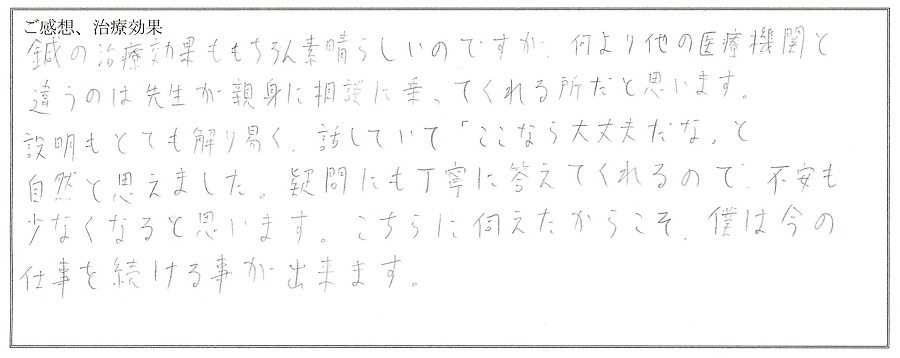 ご感想、治療効果
鍼の治療効果ももちろん素晴らしいのですが、何より他の医療機関と
違うのは先生が親身に相談に乗ってくれる所だと思います。
説明もとても解り易く、話していて「ここなら大丈夫だな」と
自然と思えました。疑問にも丁寧に答えてくれるので、不安も
少なくなると思います。こちらに伺えたからこそ、僕は今の
仕事を続ける事が出来ます。